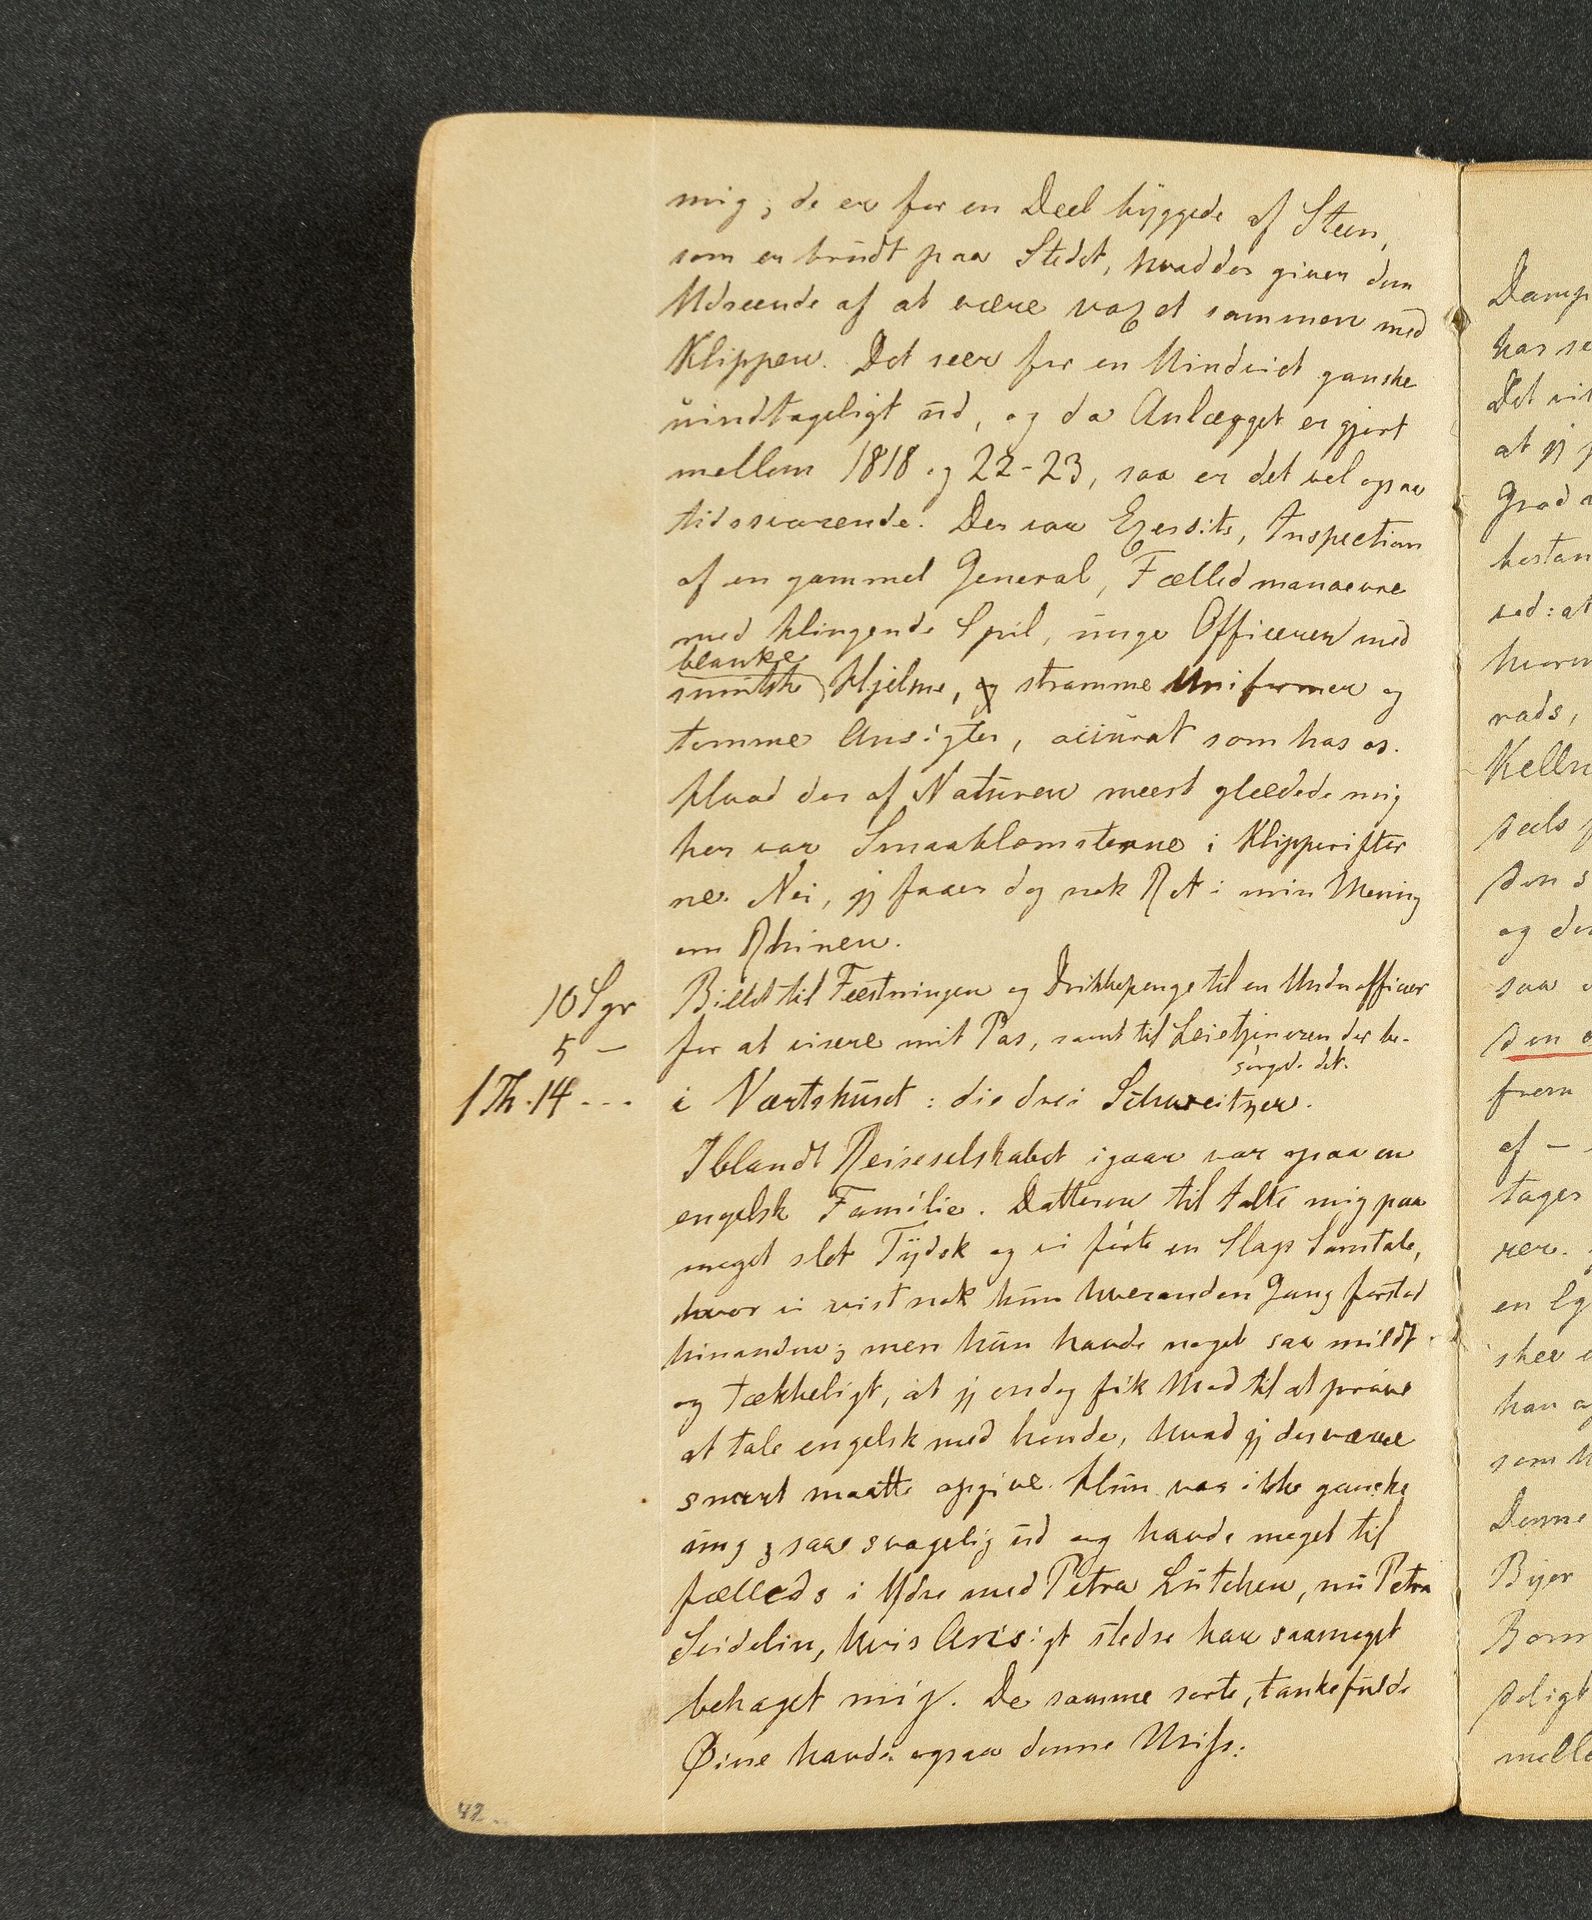 mig; de er for en Deel byggede af Steen,
som er brudt paa Stedet, hvad der giver dem
Udseende af at være voxet sammen med
Klippen. Det seer for en Uindviet ganske
uindtageligt ud, og da Anlægget er gjort
mellem 1818 og 22-23, saa er det vel ogsaa
tidssvarende. Der var Exersits, Inspection
af en gammel General, Fælledmanoevre
med klingende Spil, unge Officerer med
blanke
smukke Hjelme, og stramme Uniformer og
tomme Ansigter, accurat som hos os.
Hvad der af Naturen meest glædede mig
her var Smaablomsterne i Klipperifter
ne. Nei, jeg faaer dog nok Ret i min Mening
om Rhinen.
10 Sgr Billet til Fæstningen og Drikkepenge til en Underofficer
5 — for at visere mit Pas, samt til Leietjeneren der be-
sørgede det.
1 Th. 14 --- i Værtshuset: die drei Schweitzer.
Iblandt Reiseselskabet igaar var ogsaa en
engelsk Familie. Datteren til talte mig paa
meget slet Tydsk og vi førte en Slags Samtale,
hvor vi vist nok kun hveranden Gang forstod
hinanden; men hun havde noget saa mildt
og tækkeligt, at jeg endog fik Mod til at prøve
at tale engelsk med hende, hvad jeg desværre
snart maatte opgive. Hun var ikke ganske
ung, saae svagelig ud og havde meget til
fælleds i Ydre med Petra Lütchen, nu Petra
Seidelin, hvis Ansigt stedse har saameget
behaget mig. De samme sorte, tankefulde
Øine havde ogsaa denne Miss.
42
Damp
har se
Det vi
at jeg
Grad
bestan
ved: at
hvor
rads,
Kelln
seils
den s
og de
saa
den
frem
af —
tager
rer.
en Eg
skee
han
som
Denne
Byer
Bom
deligt
melle